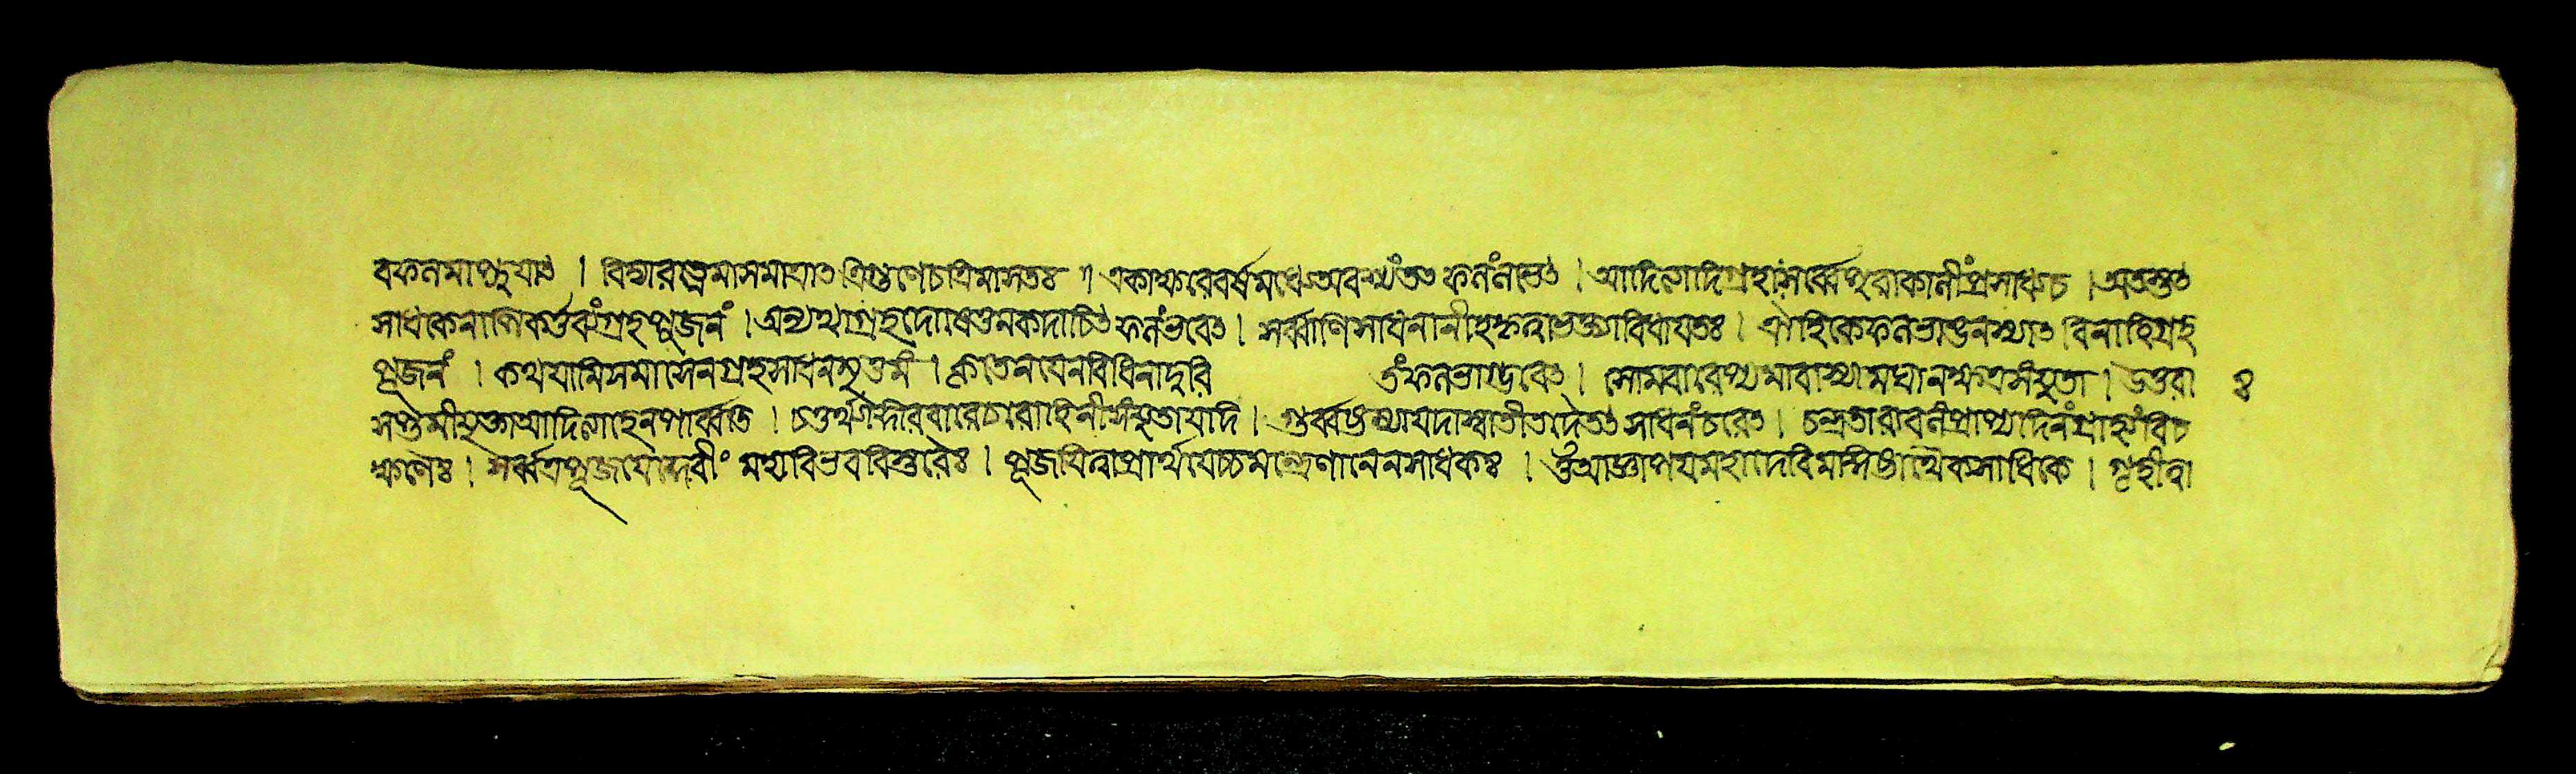 বফলমাপ্নুয়াৎ । বিদ্যারত্নেমাসমাত্রাৎত্রিগুণেচত্রিমাসতঃ ॥ একাক্ষরেবর্ষমধ্যেঅবশ্যংতৎফলংলভেৎ । আদিত্যাদিগ্রহাসর্ব্বেপুরাকালীপ্রসাধ্যচ । অতস্তৎ
সাধকেনাপিকর্ত্তব্যংগ্রহপূজনং । অন্যথাগ্রহদোষেণনকদাচিৎফলংভবেৎ । সর্ব্বাণিসাধনানীহকৃত্বাভক্ত্যাবিধায়তঃ । ঐহিকেফলভাঙনস্যাৎবিনাহিগ্রহ
পূজনং । কথয়ামিসমাসেনগ্রহসাধনমুত্তমং । কৃতেনযেনবিধিনাদুরি তংফলভাগ্ভবেৎ । সোমবারেপ্যমাবাস্যামঘানক্ষত্রসংযুতা । উত্তরা ৪
সপ্তমীযুক্তাআদিত্যাহনিপার্ব্বতি । চতুর্থ্যাংরবিবারেচরোহিনীসংযুতাযদি । গুর্ব্বষ্টম্যাযদাস্বাতীতদৈতৎসাধনংচরেৎ । চন্দ্রতারাবলংপ্রাপ্যদিনংগ্রাহ্যংবিচ
ক্ষণৈঃ । সর্ব্বত্রপূজয়েদ্দেবীং মদ্যবিভববিস্তরৈঃ । পূজয়িত্বাপ্রার্থয়েচ্চমন্ত্রেণানেনসাধকঃ । ওঁআজ্ঞাপয়মহাদেবিমাসিদ্ধ্যর্থৈকসাধিকে । গৃহীত্বা